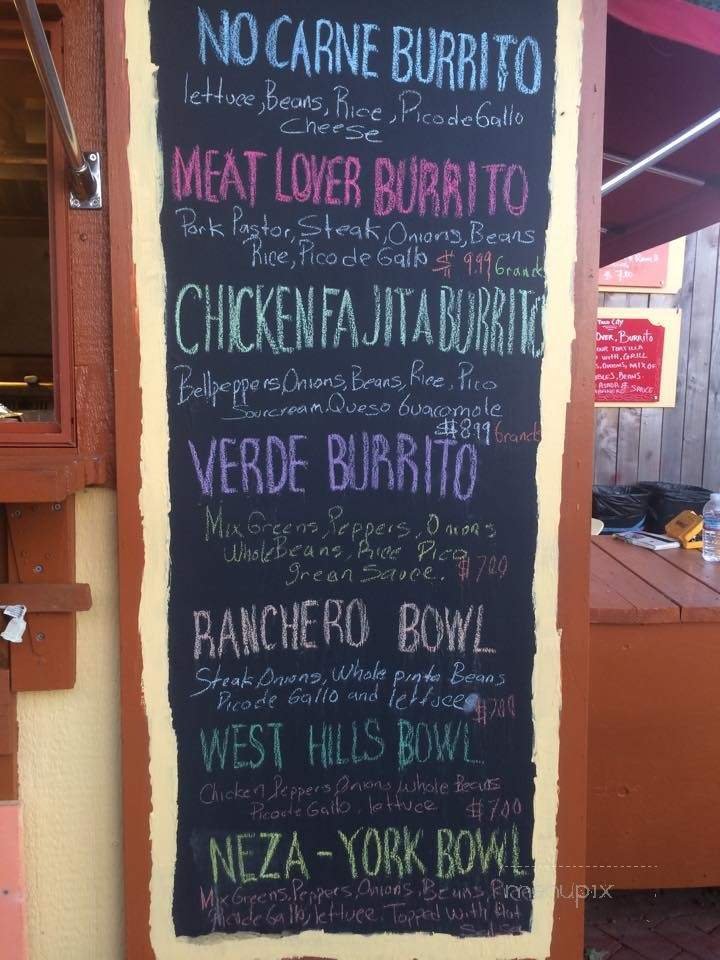 NO CARNE BURRITO
lettuce, Beans, Rice, Pico de Gallo
Cheese
MEAT LOVER BURRITO
Pork Pastor, Steak, Onions, Beans
Rice, Pico de Gallo $ 9.99 Grande
CHICKEN FAJITA BURRITO
Bellpeppers, Onions, Beans, Rice, Pico
Sourcream, Queso Guacamole
$8.99 Grande
VERDE BURRITO
Mix Greens, Peppers, Onions
Whole Beans, Rice Pico
grean Sauce. $7.00
RANCHERO BOWL
Steak, Onions, Whole pinto Beans
Pico de Gallo and lettuce $7.00
WEST HILLS BOWL
Chicken, Peppers, Onions, Whole Beans
Pico de Gallo, lettuce $7.00
NEZA - YORK BOWL
Mix Greens, Peppers, Onions, Beans,
Pico de Gallo, lettuce. Topped with Hot
Salsa
menupix
$ 7.00
Taco City
OVER, BURRITO
OUR TORTILLA
WITH, GRILL
ONIONS, MIX OF
BEANS.
SAUCE